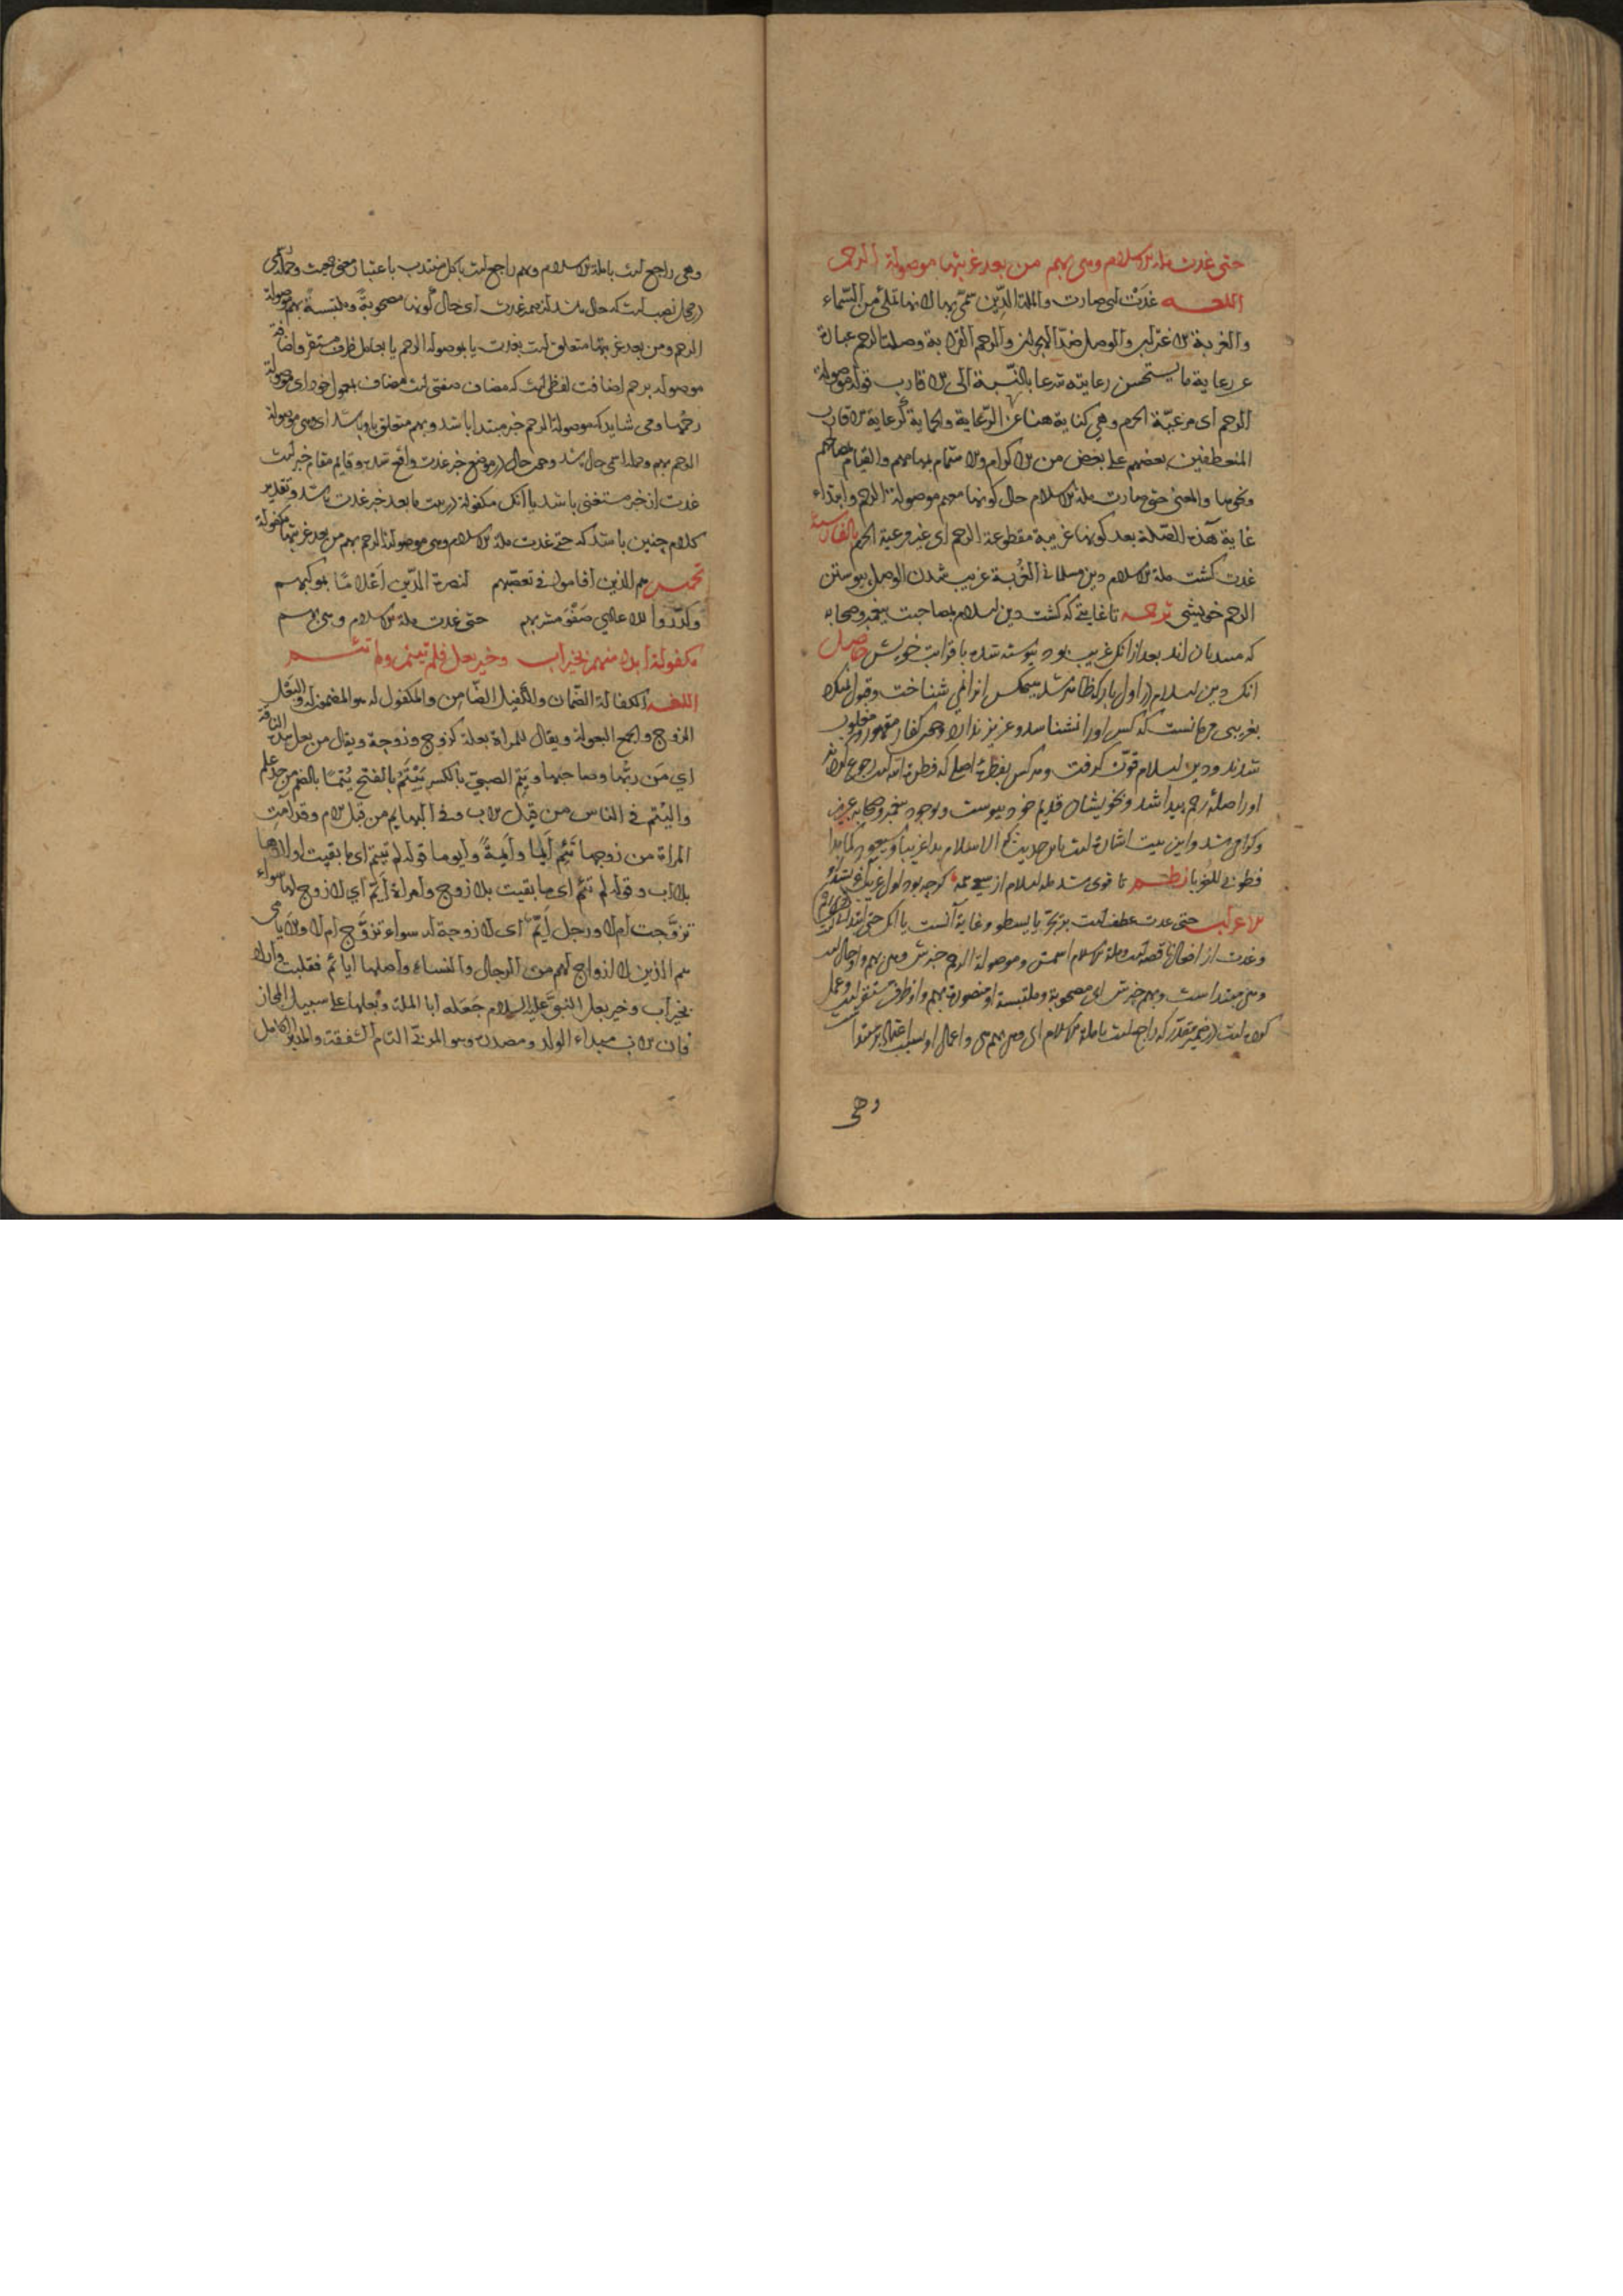 حتى غدت ملة الاسلام وهي بهم من بعد غربتها موصولة الرحم
اللغه غدت اى صارت والملة الدين سمى بها لانها تملى من السماء
والغربة الاغتراب والوصل ضد الهجران والرحم القرابة وصلة الرحم عبارة
عن رعاية ما يستحسن رعايته شرعا بالنسبة الى الاقارب قوله موصولة
الرحم اى مرعية الحرم وهي كناية هنا عن الرعاية والحماية كرعاية الاقارب
المنعطفين بعضهم على بعض من الاكرام والاهتمام بمهامهم والقيام بمصالحهم
ونحوها والمعنى حتى صارت ملة الاسلام حال كونها معهم موصولة الرحم وابتداء
غاية هذه الصلة بعد كونها غريبة مقطوعة الرحم اى غير مرعية الحرم بالفارسية
غدت كشت ملة الاسلام دين مسلمانى الغربة غريب شدن الوصل پيوستن
الرحم خويشى ترجمه تا غايتى كه كشت دين اسلام بمصاحبت پيغمبر وصحابه
كه مسديان اند بعد از انكه غريب بود پيوسته شده با قرابت خويش حاصل
انك دين اسلام در اول بار كه ظاهر شد هيچكس انرا نمى شناخت وقبول نميكرد
بغريبى مى مانست كه كس اورا نشناسد وعزيز ندارد وچون كفار مقهور ومغلوب
شدند ودين اسلام قوت كرفت وهر كس بفطرت اصلى كه فطرة الله رجوع كردند
اورا صلۀ رحم پيدا شد وبخويشان قديم خود پيوست وبوجود پيغمبر وصحابه عزيز
وكرامى شد واين بيت اشارة است باين حديث كه الاسلام بدا غريبا وسيعود كما بدا
فطوبى للغربا نظم تا قوى شد ملة اسلام از سعى همه كرچه بود اول غريب
الاعراب حتى غدت عطف است يا بسطو وغاية آنست يا انكه حتى ابتدائيه است
وغدت از افعال ناقصه است وملة الاسلام اسمش وموصولة الرحم خبرش وهى بهم واو حال است
وهى مبتداست وبهم خبرش اى مصحوبة وملتبسة او منصورة بهم واو ظرف مستقر است وعمل
كرده است در ضمير مقدر كه راجع است با ملة الاسلام اى وهى بهم هى واعمال او بسبب اعتماد بر مبتدا است
وهى
وهى راجع است با ملة الاسلام وهم راجع است با كل منتدب باعتبار معنى جمعيت وجمله اى
در محل نصب است كه حال باشد از ضمير غدت اى حال كونها مصحوبة وملتبسة بهم موصولة
الرحم ومن بعد غربتها متعلق است بغدت يا بموصولة الرحم يا بعامل ظرف مستقر واضافة
موصولة برحم اضافت لفظى است كه مضاف صفتى است مضاف بمعمول خود اى موصولة
رحمها ومى شايد كه موصولة الرحم خبر مبتدا باشد وبهم متعلق باو باشد اى وهى موصولة
الرحم بهم وجمله اسمى حال باشد وچون حال در موضع خبر غدت واقع شد وقايم مقام خبر است
غدت از خبر مستغنى باشد يا آنك مكفولة در بيت ما بعد خبر غدت باشد وتقدير
كلام چنين باشد كه حتى غدت ملة الاسلام وهى موصولة الرحم بهم من بعد غربتها مكفولة
تخميس هم الذين اقاموا فى تعصبهم لنصرة الدين اعلاما بموكبهم
وكدروا للاعادي صفو مشربهم حتى غدت ملة الاسلام وهى بهم
مكفولة ابدا منهم بخير اب وخير بعل فلم تيتم ولم تئم
اللغه الكفالة الضمان والكفيل الضامن والمكفول له هو المضمون له والبعل
الزوج والجمع البعولة ويقال للمراة بعلة كزوج وزوجة ويقال من بعل هذه الناقة
اي من ربها وصاحبها ويتم الصبي بالكسر ييتم بالفتح يتما بالضم من حد علم
واليتم فى الناس من قبل الاب وفى البهايم من قبل الام وقد آمت
المراة من زوجها تئم ايما وايمة وايوما قوله لم تيتم اى ما بقيت اولادها
بلا اب وقوله لم تئم اى ما بقيت بلا زوج وامراة ايم اي لا زوج لها سواء
تزوجت ام لا ورجل ايم اى لا زوجة له سواء تزوج ام لا والايامى
هم الذين لا ازواج لهم من الرجال والنساء واصلها ايائم فقلبت واراد
بخير اب وخير بعل النبى عليه السلام جعله ابا الملة وبعلها على سبيل المجاز
فان الاب مبداء الولد ومصدره وهو المربى التام الشفقة والمدبر الكامل